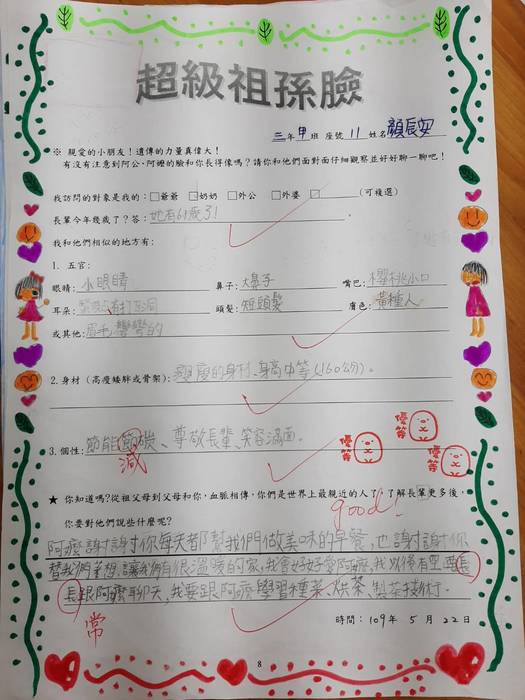 超級祖孫臉
三年甲班 座號11 姓名顏辰安
※ 親愛的小朋友!遺傳的力量真偉大!
有沒有注意到阿公、阿嬤的臉和你長得像嗎?請你和他們面對面仔細觀察並好好聊一聊吧!
我訪問的對象是我的:□爺爺 □奶奶 □外公 □外婆 □ (可複選)
長輩今年幾歲了?答:她有61歲了!
我和他們相似的地方有:
1. 五官:
眼睛:小眼睛 鼻子:大鼻子 嘴巴:櫻桃小口
耳朵:有打耳洞 頭髮:短頭髮 膚色:黃種人
或其他:眉毛彎彎的
2.身材(高瘦矮胖或骨架):瘦瘦的身材、身高中等(160公分)。
3.個性:節能節機、尊敬長輩、笑容滿面。
減
優等
優等
優等
★ 你知道嗎?從祖父母到父母和你,血脈相傳,你們是世界上最親近的人了,了解長輩更多後,
你要對他們說些什麼呢?
good!
阿嬤謝謝你每天都幫我們做美味的早餐,也謝謝你
替我們著想,讓我們有很溫暖的家,我會好好愛阿嬤,我以後有空,要長
長跟阿嬤聊天,我要跟阿嬤學習種菜、烘茶、製茶技術。
常
時間:109年 5 月 22日
8